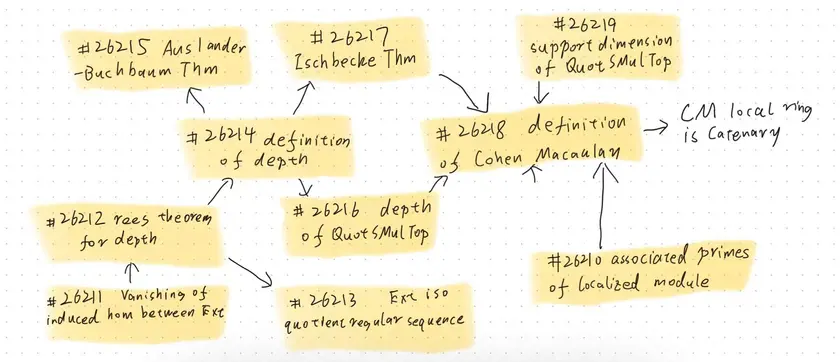 #26215 Auslander
-Buchbaum Thm
#26217
Ischbecke Thm
#26219
support dimension
of QuotSMulTop
#26214 definition
of depth
#26218 definition
of Cohen Macaulay
CM local ring
is Catenary
#26212 rees theorem
for depth
#26216 depth
of QuotSMulTop
#26210 associated primes
of localized module
#26211 Vanishing of
induced hom between Ext
#26213 Ext iso
quotient regular sequence